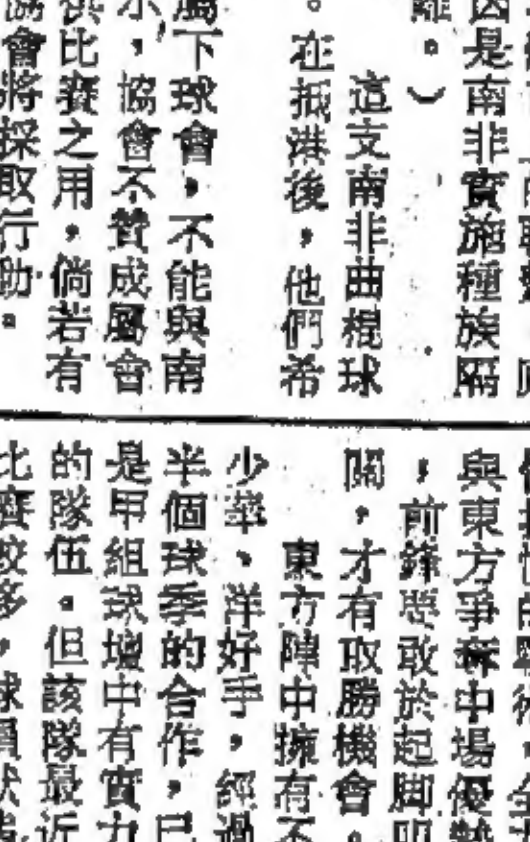 因是南非實施種族隔
離。）
這支南非曲棍球
。在抵港後，他們希
屬下球會，不能與南
示，協會不贊成屬會
供比賽之用。倘若有
協會將採取行動。
與東方爭奪中場優勢
，前鋒要敢於起脚叩
關，才有取勝機會。
東方陣中擁有不
少華、洋好手，經過
半個球季的合作，已
是甲組球壇中有實力
的隊伍。但該隊最近
比賽較多，球員狀態